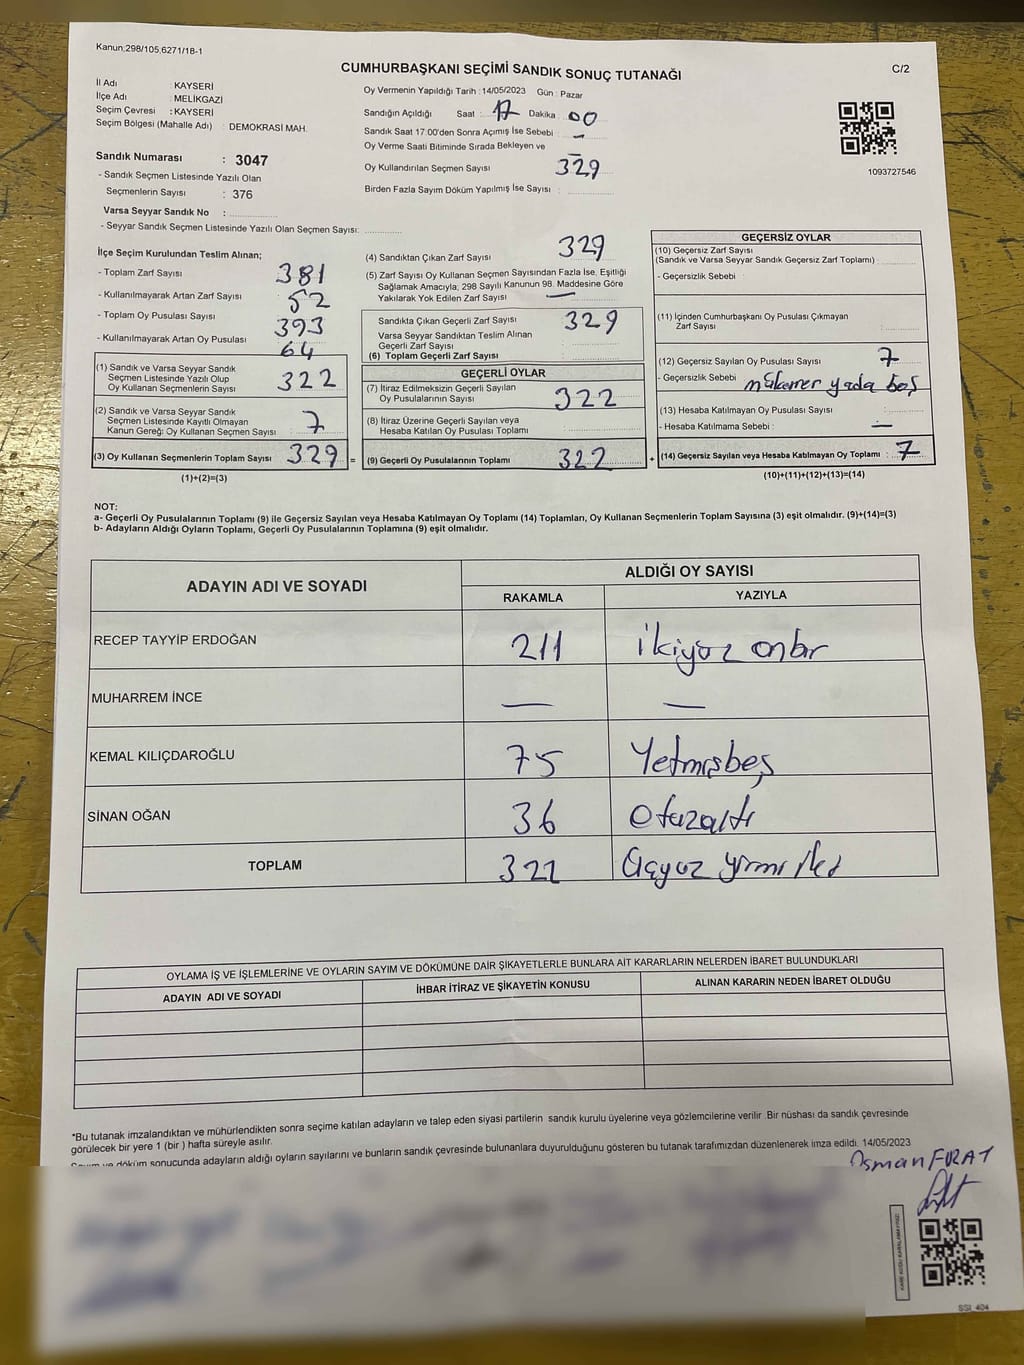 Kanun;298/105,6271/18-1
C/2
CUMHURBAŞKANI SEÇİMİ SANDIK SONUÇ TUTANAĞI
İl Adı : KAYSERİ
İlçe Adı : MELİKGAZİ
Seçim Çevresi : KAYSERİ
Seçim Bölgesi (Mahalle Adı) : DEMOKRASİ MAH.
Sandık Numarası : 3047
- Sandık Seçmen Listesinde Yazılı Olan
Seçmenlerin Sayısı : 376
Varsa Seyyar Sandık No :
- Seyyar Sandık Seçmen Listesinde Yazılı Olan Seçmen Sayısı:
Oy Vermenin Yapıldığı Tarih : 14/05/2023 Gün : Pazar
Sandığın Açıldığı Saat : 17 Dakika : 00
Sandık Saat 17:00'den Sonra Açımış İse Sebebi : —
Oy Verme Saati Bitiminde Sırada Bekleyen ve —
Oy Kullandırılan Seçmen Sayısı 329
Birden Fazla Sayım Döküm Yapılmış İse Sayısı :
1093727546
İlçe Seçim Kurulundan Teslim Alınan;
- Toplam Zarf Sayısı 381
- Kullanılmayarak Artan Zarf Sayısı 52
- Toplam Oy Pusulası Sayısı 393
- Kullanılmayarak Artan Oy Pusulası 64
(1) Sandık ve Varsa Seyyar Sandık
Seçmen Listesinde Yazılı Olup
Oy Kullanan Seçmenlerin Sayısı : 322
(2) Sandık ve Varsa Seyyar Sandık
Seçmen Listesinde Kayıtlı Olmayan
Kanun Gereği Oy Kullanan Seçmen Sayısı : 7
(3) Oy Kullanan Seçmenlerin Toplam Sayısı : 329 =
(1)+(2)=(3)
(4) Sandıktan Çıkan Zarf Sayısı : 329
(5) Zarf Sayısı Oy Kullanan Seçmen Sayısından Fazla İse, Eşitliği
Sağlamak Amacıyla; 298 Sayılı Kanunun 98. Maddesine Göre
Yakılarak Yok Edilen Zarf Sayısı : —
Sandıkta Çıkan Geçerli Zarf Sayısı : 329
Varsa Seyyar Sandıktan Teslim Alınan
Geçerli Zarf Sayısı :
(6) Toplam Geçerli Zarf Sayısı :
GEÇERLİ OYLAR
(7) İtiraz Edilmeksizin Geçerli Sayılan
Oy Pusulalarının Sayısı : 322
(8) İtiraz Üzerine Geçerli Sayılan veya
Hesaba Katılan Oy Pusulası Toplamı :
(9) Geçerli Oy Pusulalarının Toplamı : 322 +
GEÇERSİZ OYLAR
(10) Geçersiz Zarf Sayısı
(Sandık ve Varsa Seyyar Sandık Geçersiz Zarf Toplamı) :
- Geçersizlik Sebebi :
(11) İçinden Cumhurbaşkanı Oy Pusulası Çıkmayan
Zarf Sayısı :
(12) Geçersiz Sayılan Oy Pusulası Sayısı : 7
- Geçersizlik Sebebi : yada boş
(13) Hesaba Katılmayan Oy Pusulası Sayısı :
- Hesaba Katılmama Sebebi : —
(14) Geçersiz Sayılan veya Hesaba Katılmayan Oy Toplamı : 7
(10)+(11)+(12)+(13)=(14)
NOT:
a- Geçerli Oy Pusulalarının Toplamı (9) ile Geçersiz Sayılan veya Hesaba Katılmayan Oy Toplamı (14) Toplamları, Oy Kullanan Seçmenlerin Toplam Sayısına (3) eşit olmalıdır. (9)+(14)=(3)
b- Adayların Aldığı Oyların Toplamı, Geçerli Oy Pusulalarının Toplamına (9) eşit olmalıdır.
ADAYIN ADI VE SOYADI
ALDIĞI OY SAYISI
RAKAMLA YAZIYLA
RECEP TAYYİP ERDOĞAN 211 ikiyüz onbir
MUHARREM İNCE — —
KEMAL KILIÇDAROĞLU 75 Yetmişbeş
SİNAN OĞAN 36 otuzaltı
TOPLAM 322 Üçyüz yirmi iki
OYLAMA İŞ VE İŞLEMLERİNE VE OYLARIN SAYIM VE DÖKÜMÜNE DAİR ŞİKAYETLERLE BUNLARA AİT KARARLARIN NELERDEN İBARET BULUNDUKLARI
ADAYIN ADI VE SOYADI İHBAR İTİRAZ VE ŞİKAYETİN KONUSU ALINAN KARARIN NEDEN İBARET OLDUĞU
*Bu tutanak imzalandıktan ve mühürlendikten sonra seçime katılan adayların ve talep eden siyasi partilerin sandık kurulu üyelerine veya gözlemcilerine verilir .Bir nüshası da sandık çevresinde
görülecek bir yere 1 (bir ) hafta süreyle asılır.
Sayım ve döküm sonucunda adayların aldığı oyların sayılarını ve bunların sandık çevresinde bulunanlara duyurulduğunu gösteren bu tutanak tarafımızdan düzenlenerek imza edildi. 14/05/2023
Osman FIRAT
SSI_404